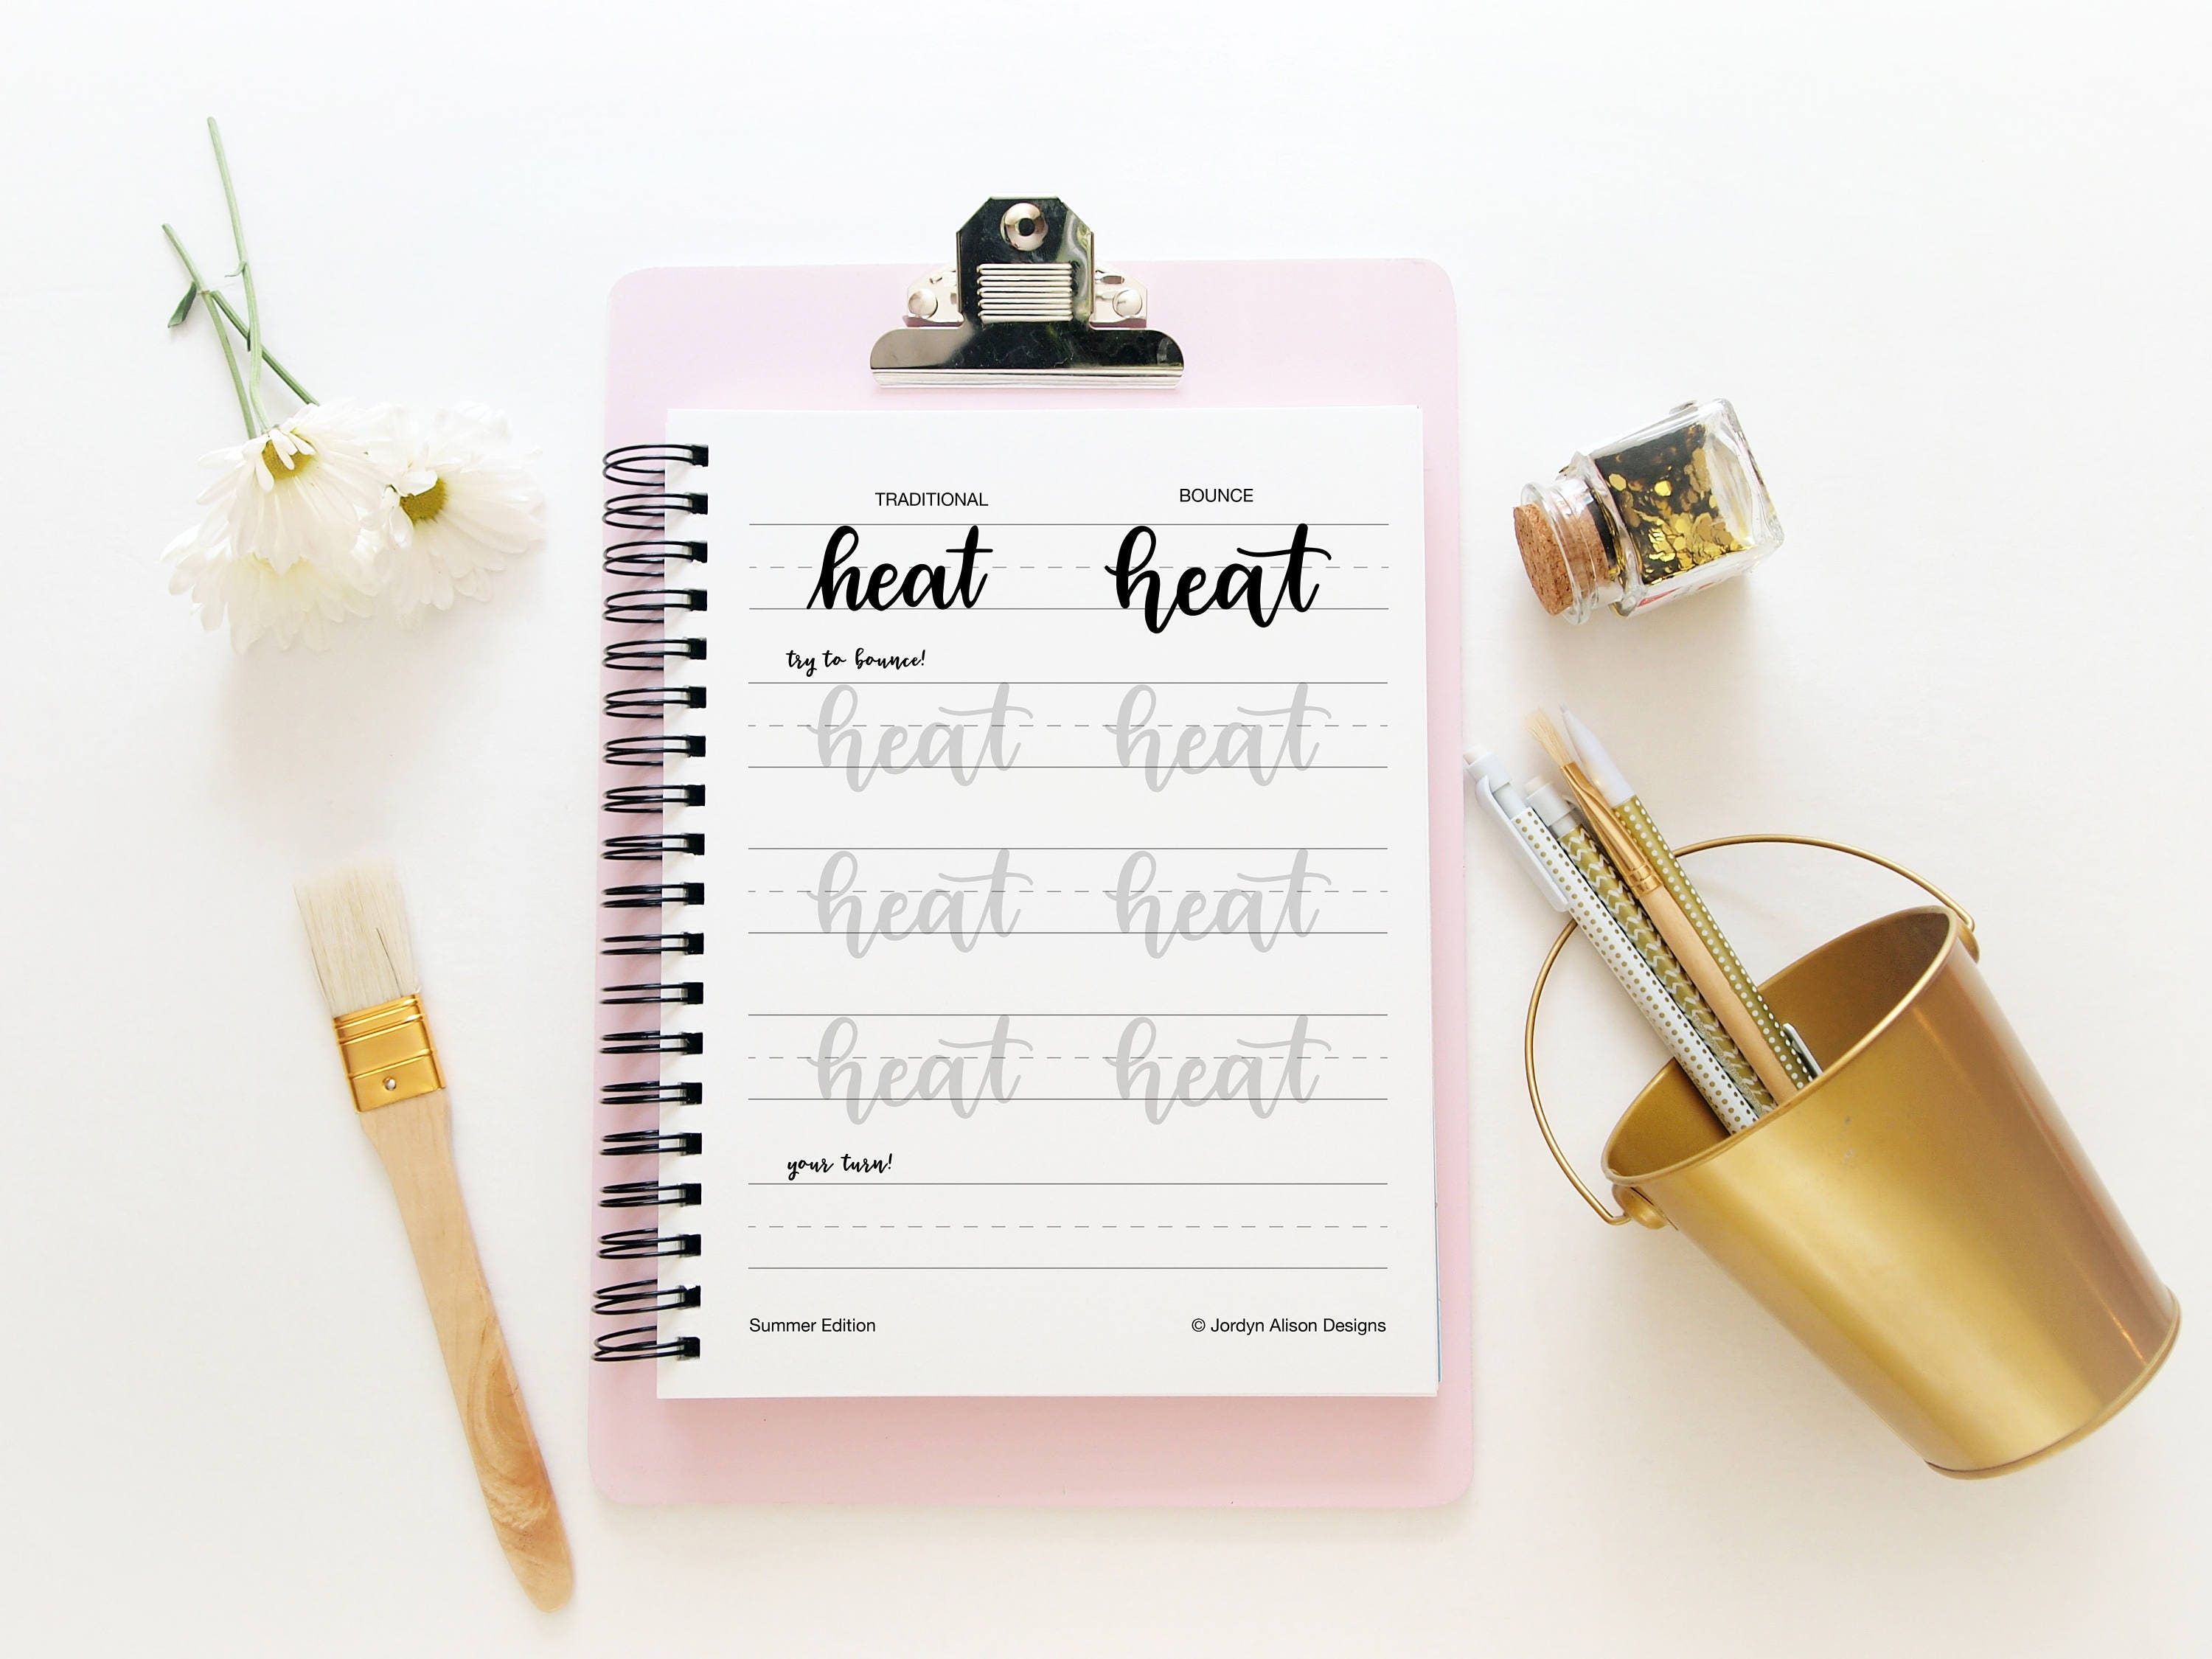 TRADITIONAL BOUNCE
heat heat
try to bounce!
heat heat
heat heat
heat heat
your turn!
Summer Edition © Jordyn Alison Designs